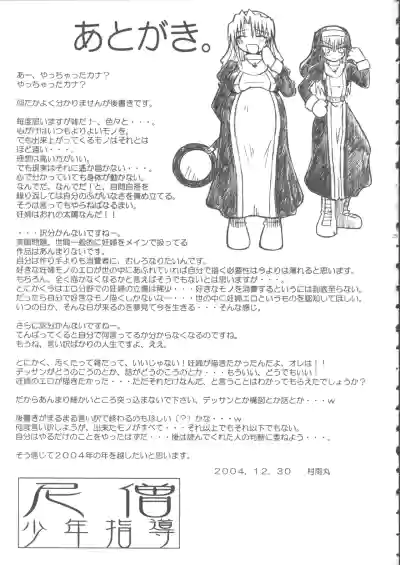 あとがき。
あー、やっちゃったカナ？
やっちゃったカナ？
何だかよく分かりませんが後書きです。
毎度思いますが雑だﾅｰ、色々と・・・。
心がけはいつもよりよいモノを。
でも出来上がってくるモノはそれとは
ほど遠い・・・。
理想は高い方がいい。
でも現実はそれに遥か届かない・・・。
心で分かっていても身体が動かない。
なんでだ、なんでだ！と、自問自答を
繰り返しては自分のふがいなさを責め立てる。
そうは言ってもやらねばなるまい。
妊婦はおれの太陽なんだ！！
・・・訳分かんないですねー。
実際問題、世間一般的に妊婦をメインで扱ってる
作品はあんまりないです。
自分は作り手よりも消費者に、むしろなりたいんです。
好きな妊婦モノのエロが世の中にあふれていれば自分で描く必要性は今よりは薄れると思います。
もちろん、全く描かなくなるかと言えばそうでもないでしょうけど・・・。
とにかく今はエロ分野での妊婦の立場は稀少・・・好きなモノを消費するというには到底至らない。
だったら自分で好きなモノ描くしかないなー・・・世の中に妊婦エロというものを認知してほしい。
いつの日か、そんな日が来るのを夢見て今を生きる・・・そんな感じ。
さらに訳分かんないですねー。
てんぱってくると自分で何言ってるか分からなくなるのですね。
もうね、言い訳ばかりの人生ですよ、ええ。
とにかく、汚くたって雑だって、いいじゃない！妊婦が描きたかったんだよ、オレは！！
デッサンがどうのこうのとか、話がどうのこうのとか・・・もういい、どうでもいい！
妊婦のエロが描きたかった・・・ただそれだけなんだ、と言うことはわかってもらえたでしょうか？
だからあんまり細かいところ突っ込まないで下さい、デッサンとか構図とか話とか・・・w
後書きがまるまる言い訳で終わるのも珍しい（？）かな・・・w
何言い訳しようが、出来たモノがすべて・・・それ以上でもそれ以下でもない。
自分はやるだけのことをやったはずだ・・・後は読んでくれた人の判断に委ねよう・・・。
そう信じて２００４年の年を越したいと思います。
２００４．１２．３０　村雨丸
尼僧
少年指導